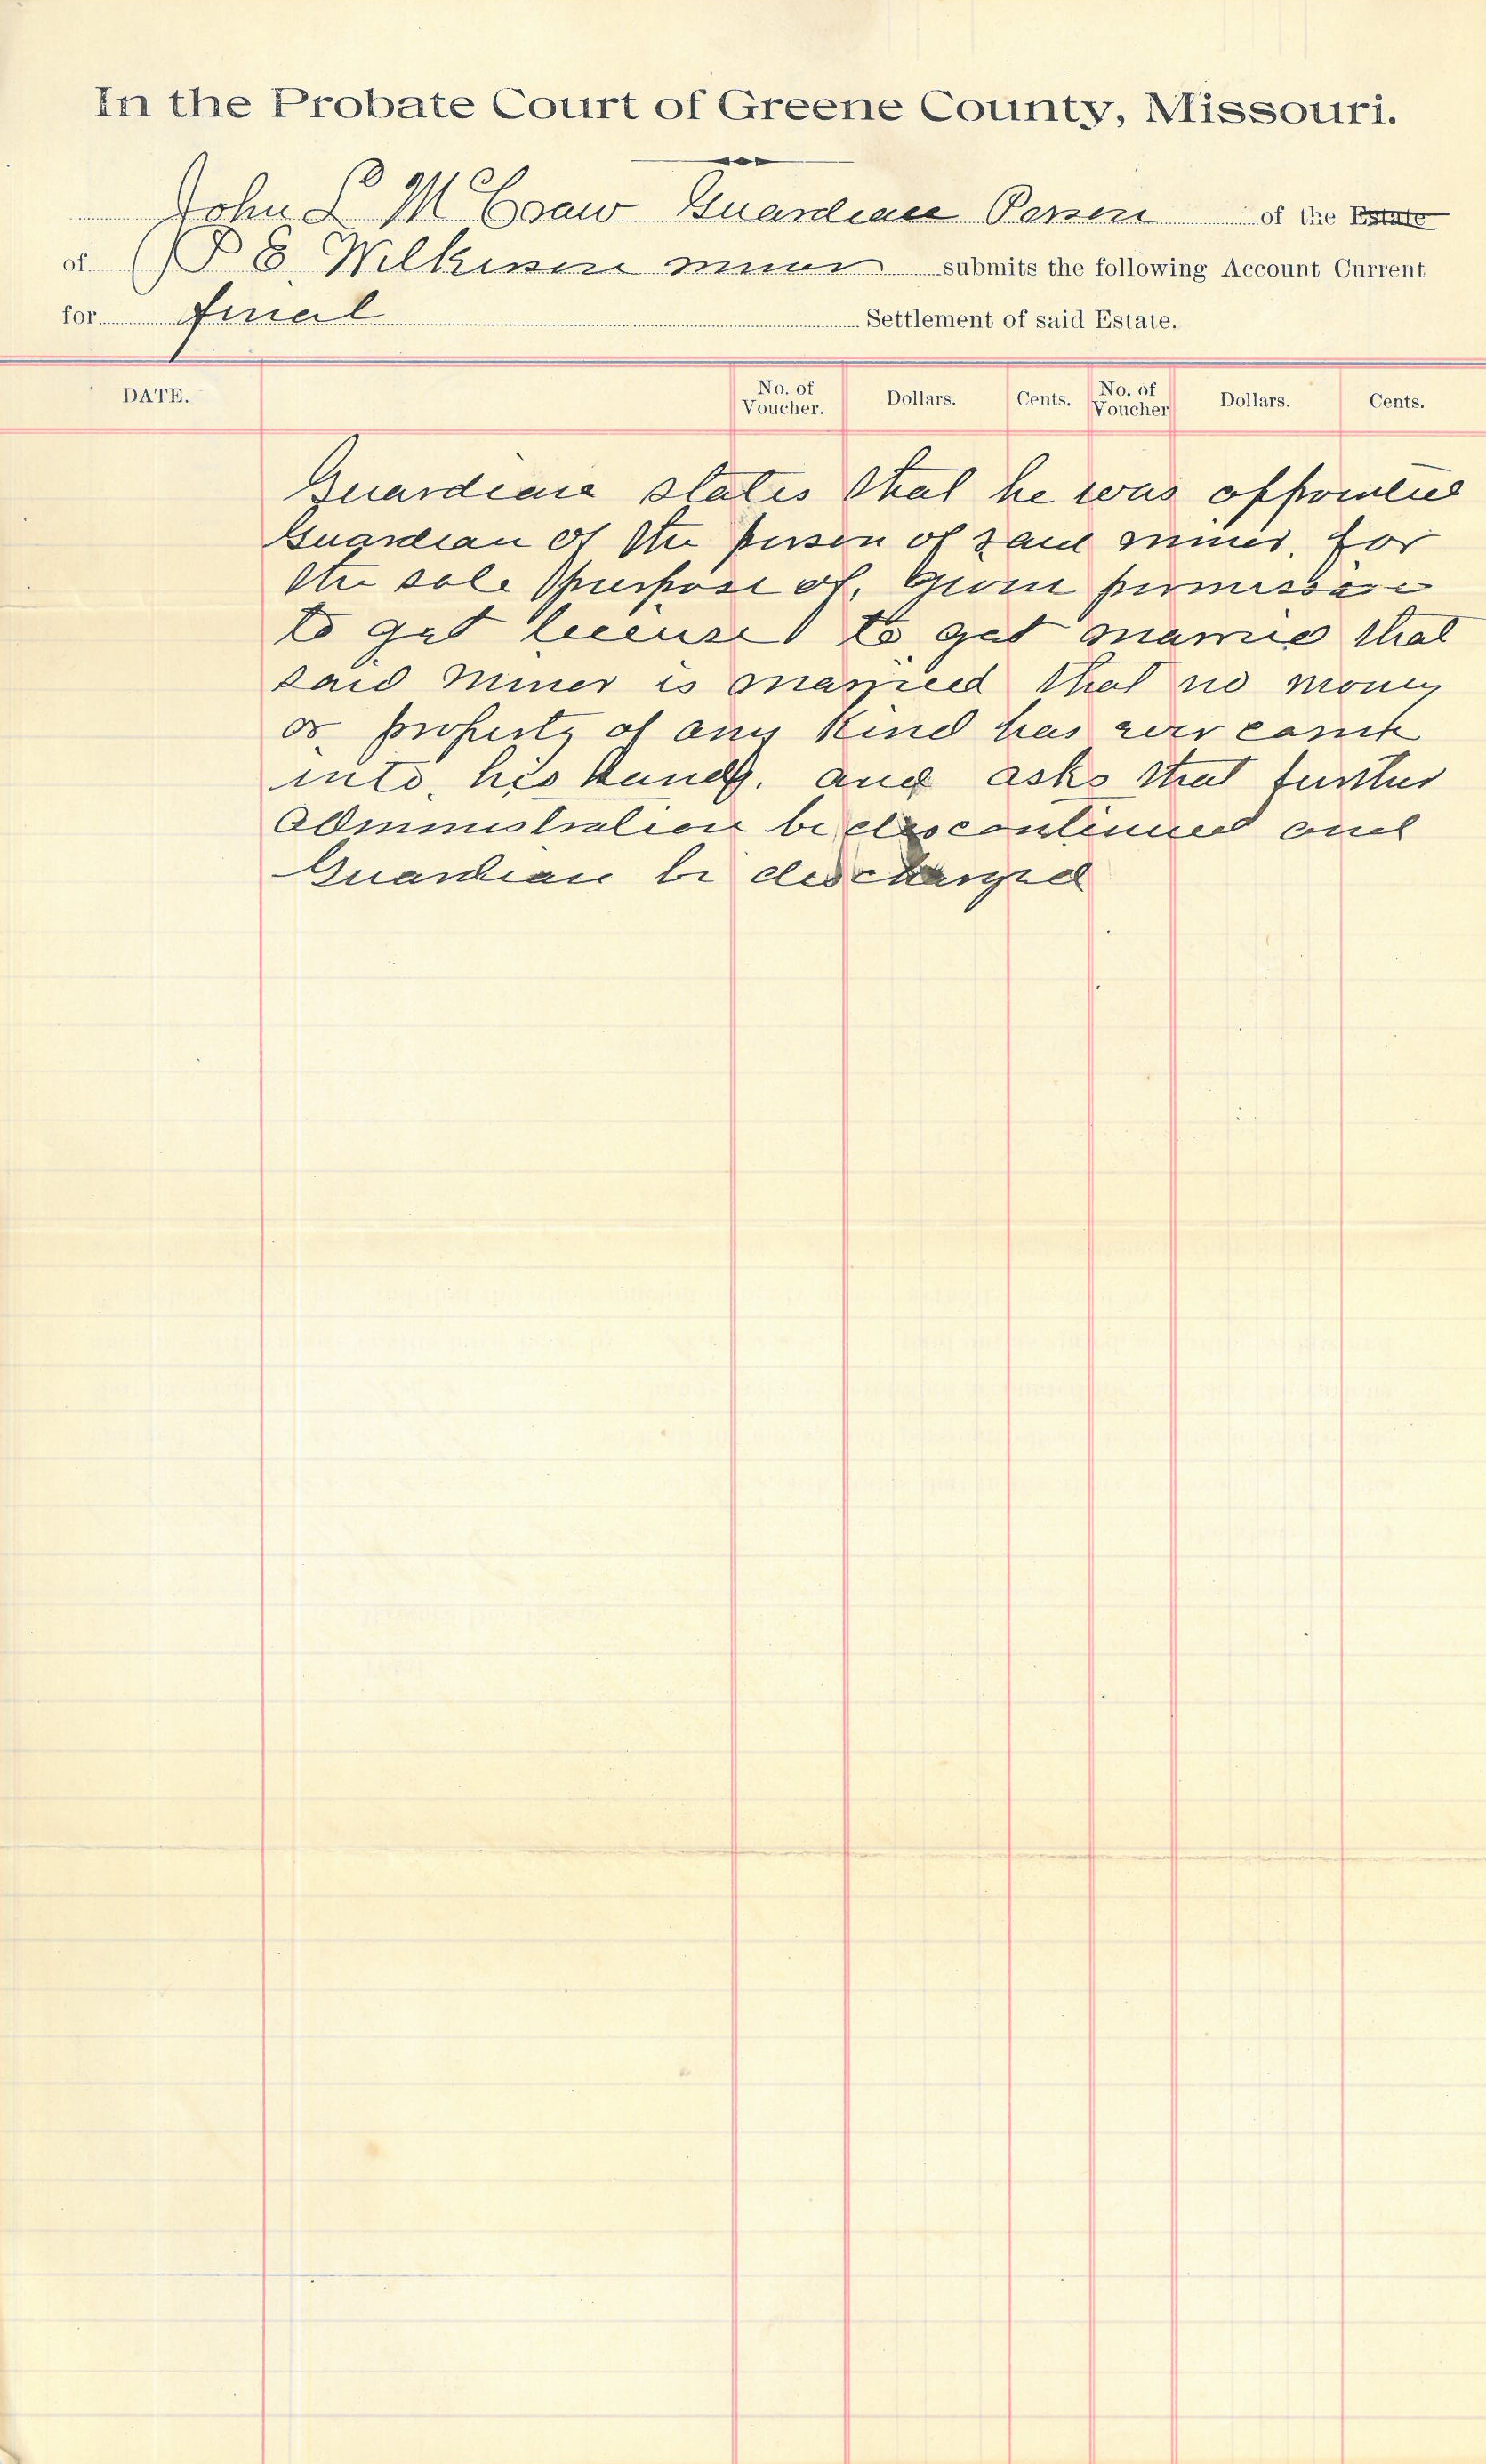 In the Probate Court of Greene County, Missouri.
John L McCraw Guardian Person of the Estate
of P E Wilkinson minor submits the following Account Current
for final Settlement of said Estate.
DATE. No. of Voucher. Dollars. Cents. No. of Voucher Dollars. Cents.
Guardian states that he was appointed
Guardian of the person of said minor. for
the sole purpose of. given permission
to get license to get married that
said minor is married that no money
or property of any kind has ever came
into his hands. and asks that further
administration be discontinued and
Guardian be discharged